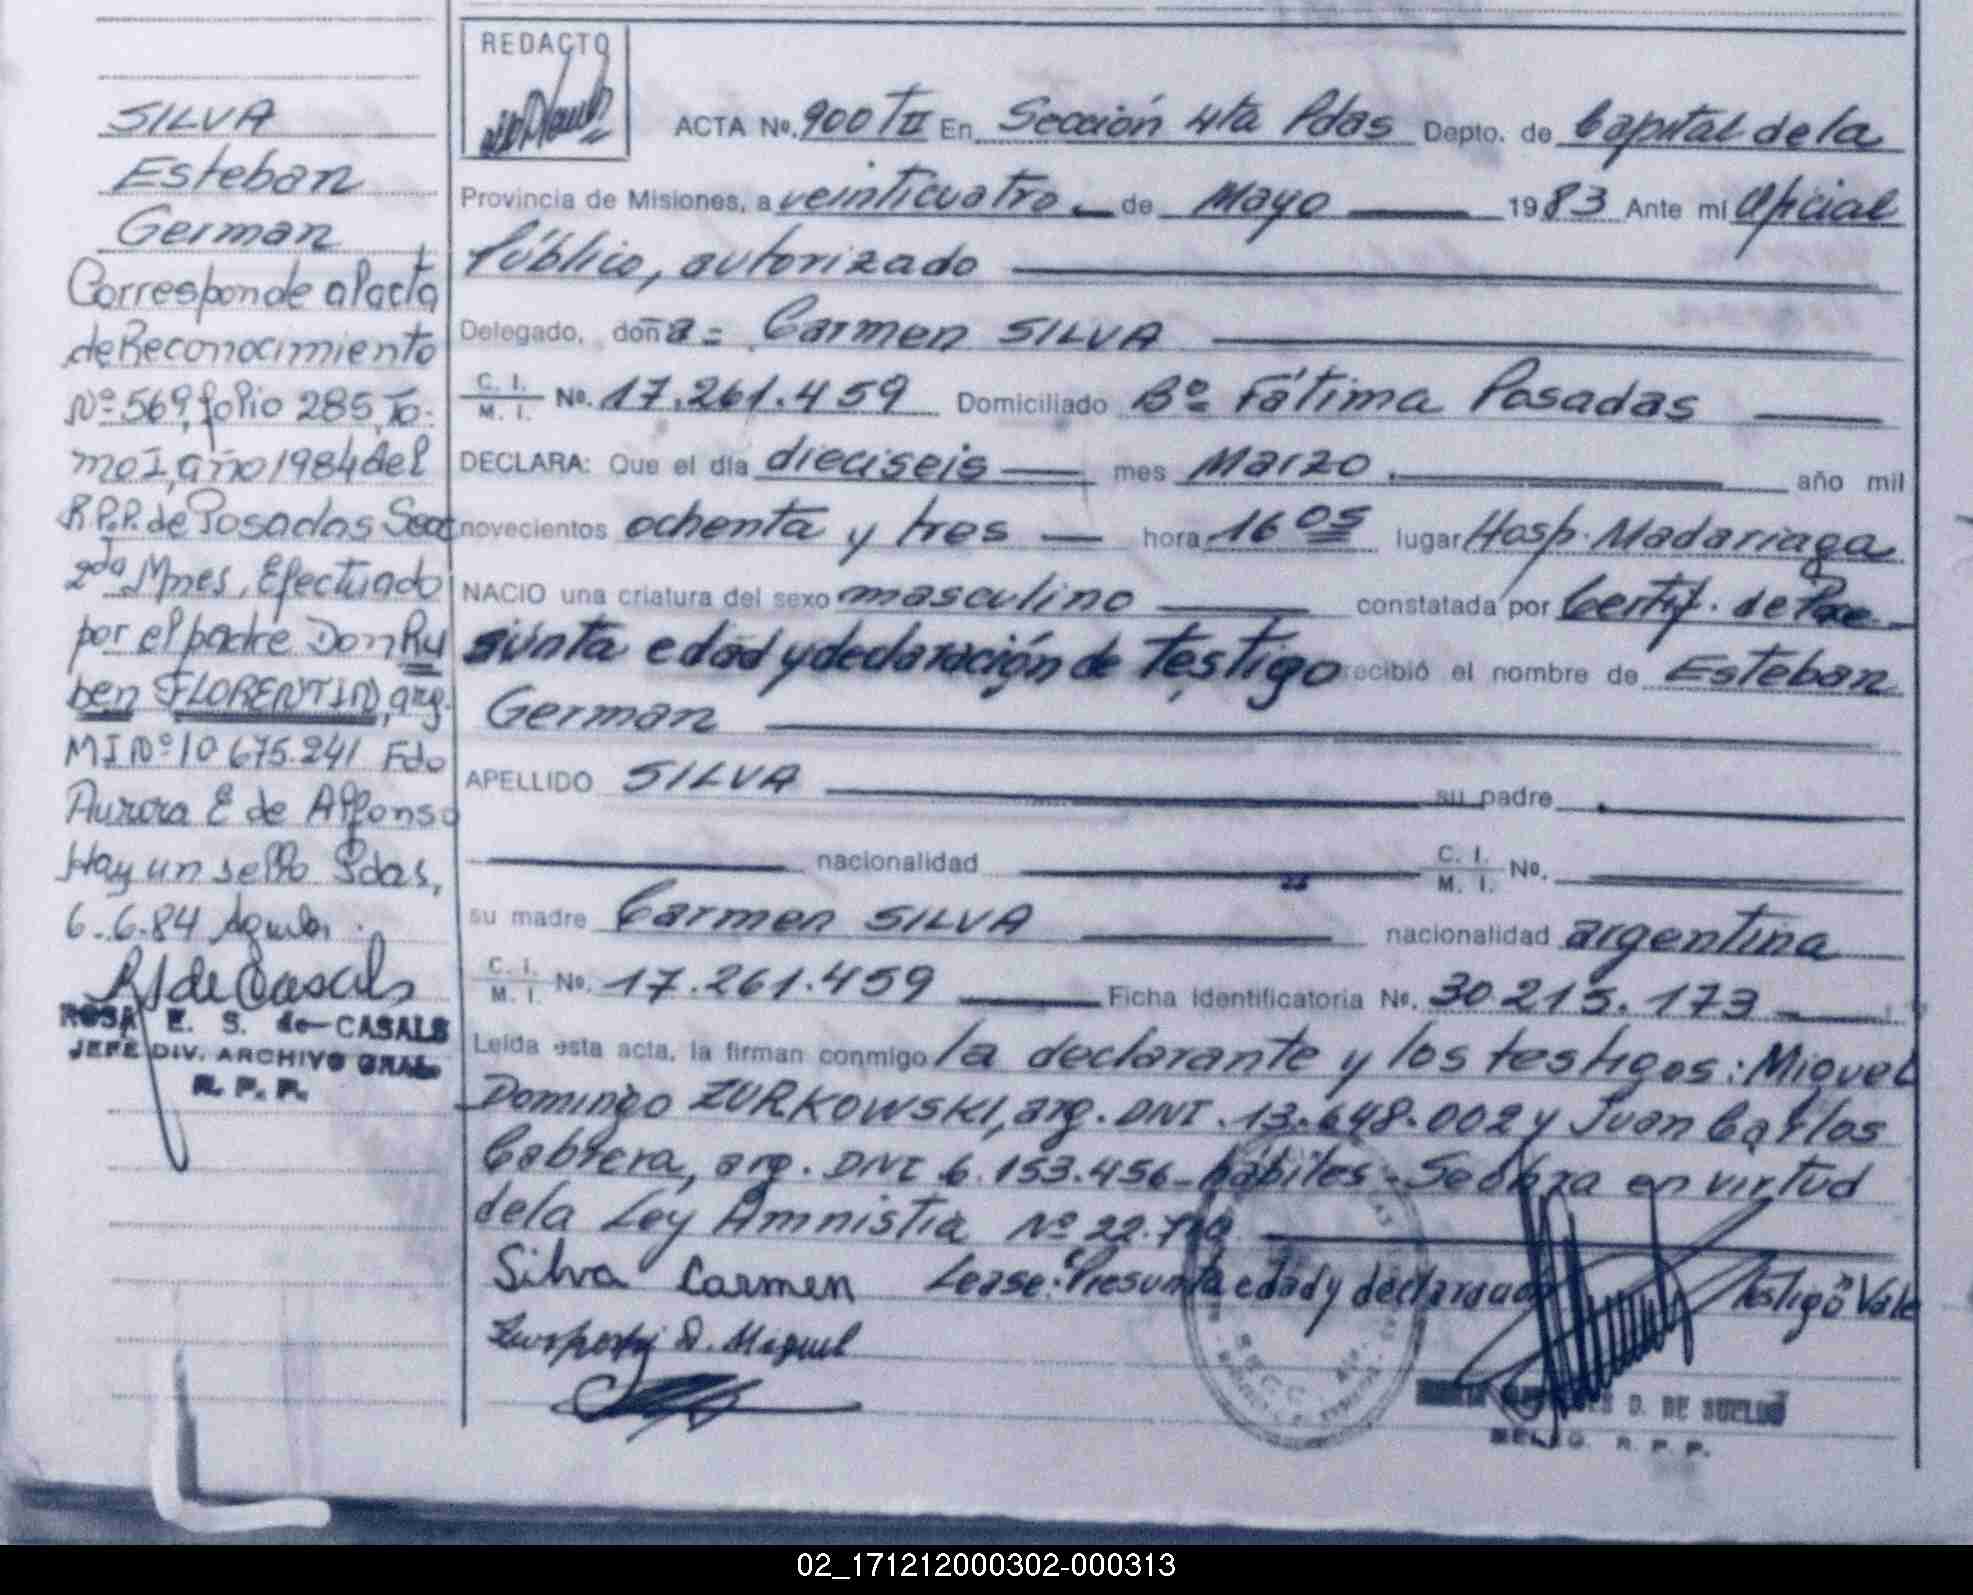 SILVA
Esteban
German
Corresponde al acta
de Reconocimiento
Nº 569, folio 285, To-
mo I, año 1984 del
R.P.P. de Posadas Secc
2da Mnes, Efectuado
por el padre Don Ru
ben FLORENTIN, arg.
MI Nº 10.675.241 Fdo
Aurora E de Alfonso
Hay un sello Pdas,
6-6-84
ROSA E. S. de CASALS
JEFE DIV. ARCHIVO GRAL.
R. P. P.
REDACTO
ACTA No. 900 TII En Sección 4ta Pdas Depto. de Capital de la
Provincia de Misiones, a veinticuatro de Mayo 1983 Ante mí Oficial
Público, autorizado
Delegado, doña = Carmen SILVA
C. I. / M. I. No. 17.261.459 Domiciliado Bº Fátima Posadas
DECLARA: Que el día dieciseis mes Marzo año mil
novecientos ochenta y tres hora 16 05 lugar Hosp. Madariaga
NACIO una criatura del sexo masculino constatada por Certif. de Pre-
sunta edad y declaración de Testigo recibió el nombre de Esteban
German
APELLIDO SILVA su padre
nacionalidad C. I. / M. I. No.
su madre Carmen SILVA nacionalidad argentina
C. I. / M. I. No. 17.261.459 Ficha Identificatoria No. 30.215.173
Leída esta acta, la firman conmigo la declarante y los testigos: Miguel
Domingo ZURKOWSKI, arg. DNI. 13.648.002 y Juan Carlos
Cabrera, arg. DNI 6.153.456 - hábiles - Se obra en virtud
de la Ley Amnistia Nº 22.710
Silva Carmen Lease: "Presunta edad y declaración Testigo" Vale
D. Miguel
D. DE SUELDO
DELEG. R. P. P.
02_171212000302-000313